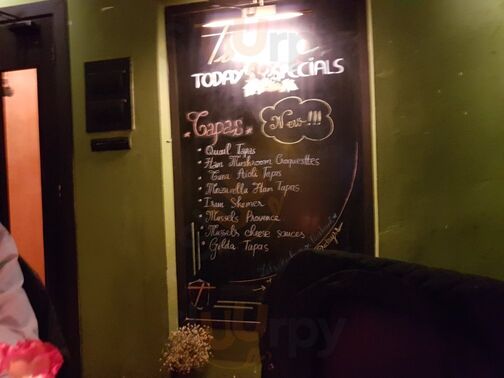 TODAY'S SPECIALS
Tapas
New!!!
Quail Tapas
Ham Mushroom Croquettes
Tuna Aioli Tapas
Mozarella Ham Tapas
Mussels Provence
Mussels cheese sauces
Gilda Tapas